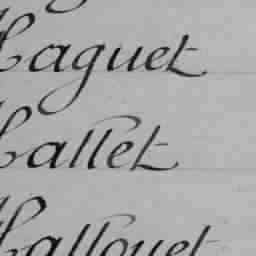 Haguet
Hallet
Hallouet